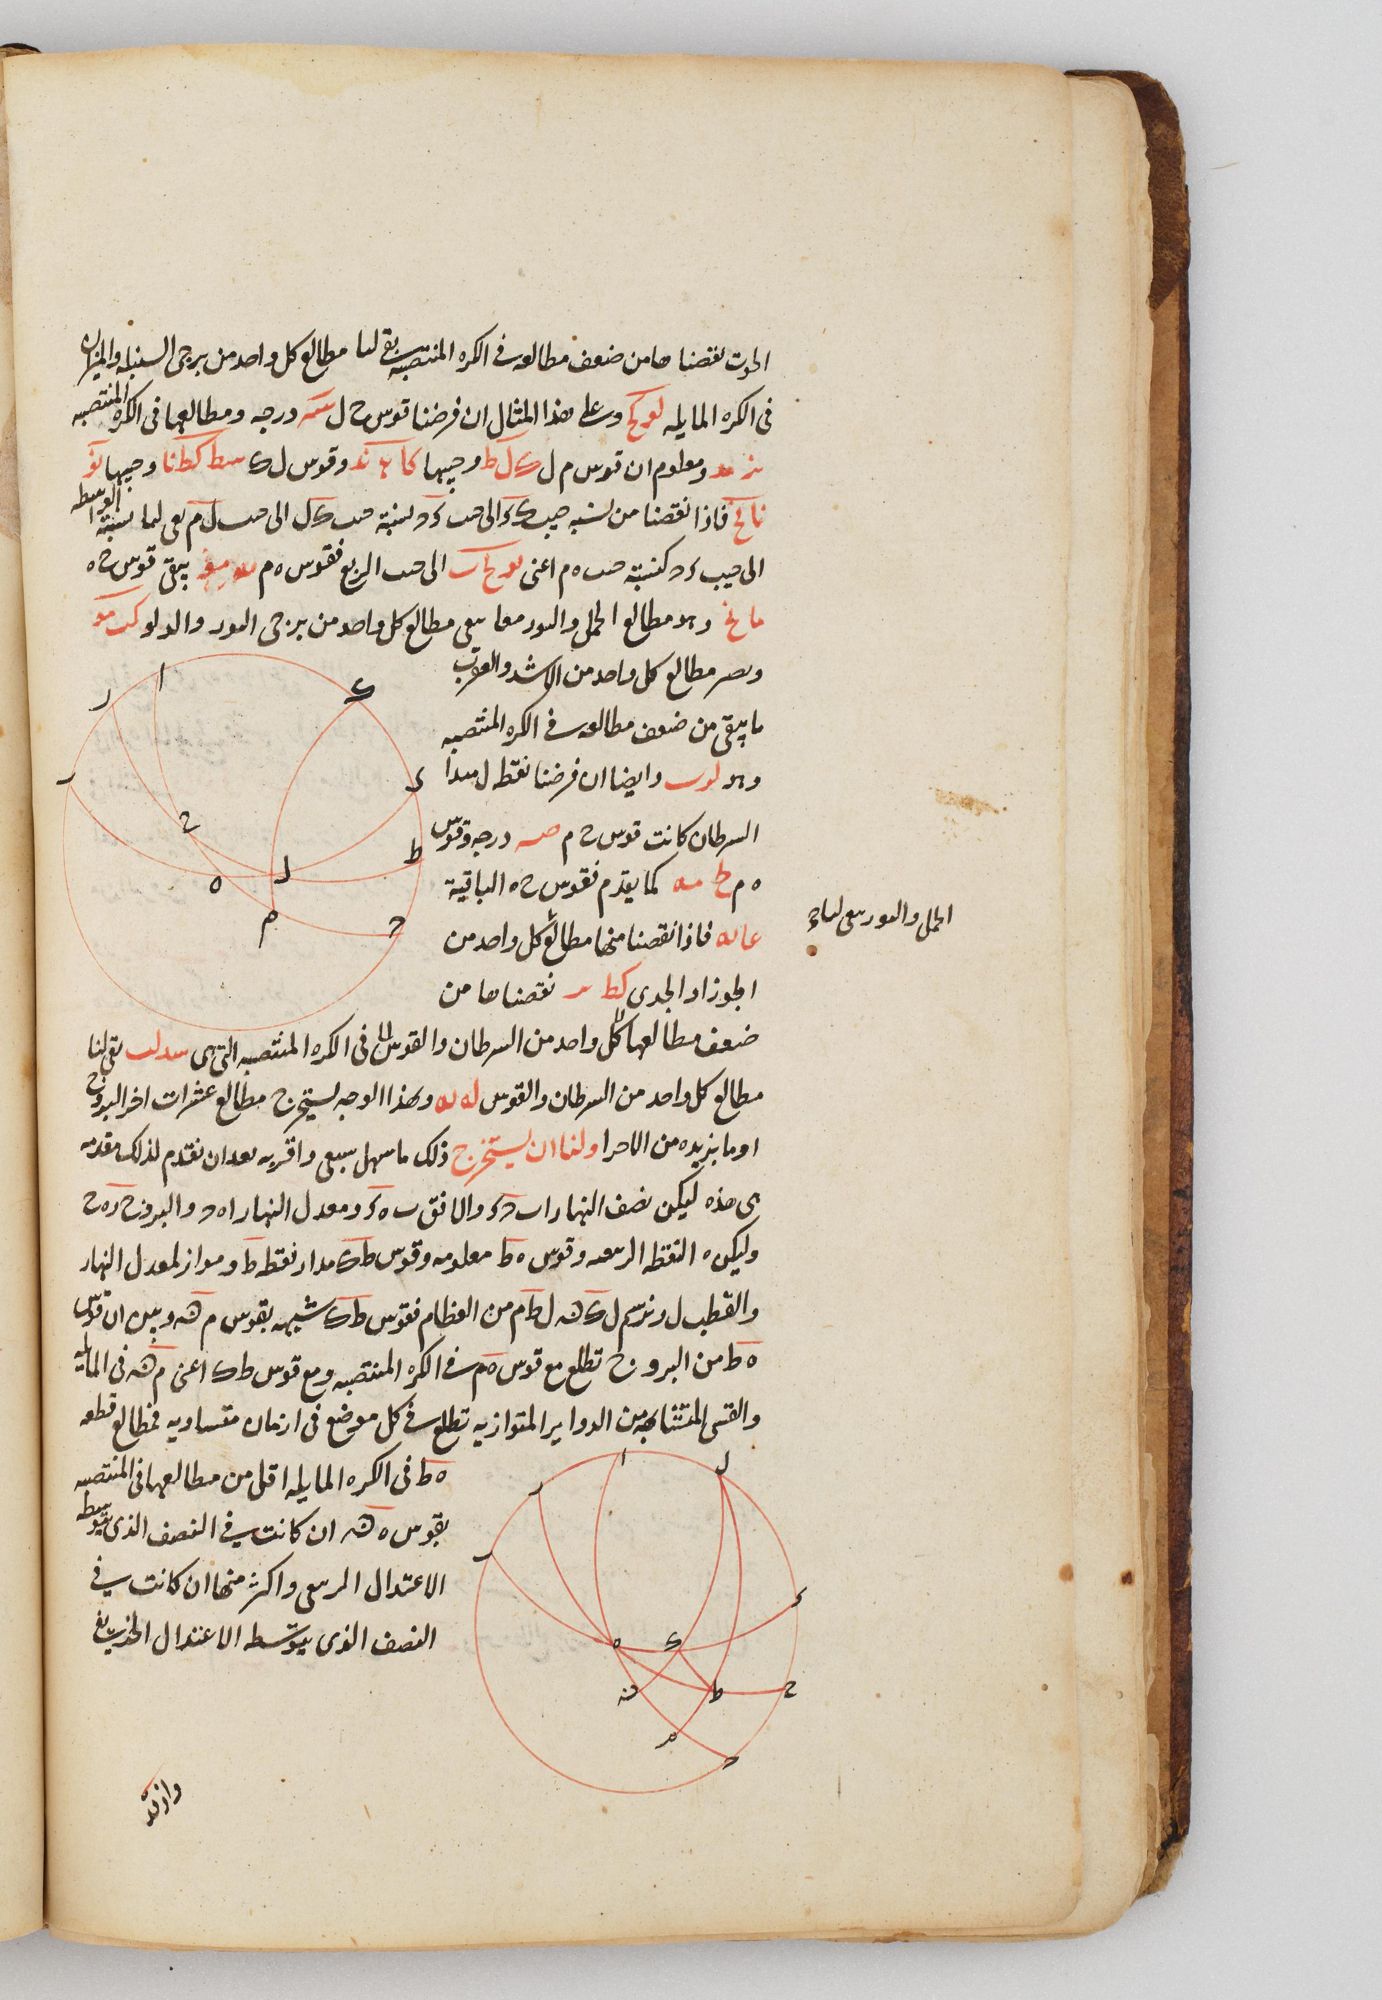 الحوت نقصناها من ضعف مطالعه فى الكره المنتصبه بقى لنا مطالع كل واحد من برجى السنبله والميزان
فى الكره المايله لو كح وعلى هذا المثال ان فرضنا قوس ح ل سه درجه ومطالعها فى الكره المنتصبه
ومعلوم ان قوس م ل ك ل ط وجيبها كا ند وقوس ل ك سط كط نا وجيبها نو
فاذا نقصنا من نسبه جيب ك د الى جيب د ح نسبة جيب ك ل الى جيب ل م بقى لنا نسبة الوسطه
الى جيب د ح كنسبة جيب ه م اعنى الى جيب الربع فقوس ه م يبقى قوس ح ه
وهى مطالع الحمل والثور معا بقى مطالع كل واحد من برجى الثور والدلو كب مو
ويصير مطالع كل واحد من الاسد والعقرب
ما يبقى من ضعف مطالعه فى الكره المنتصبه
وهى لو ب وايضا ان فرضنا نقطه ل مبدا
السرطان كانت قوس ح م ص درجه وقوس
ه م ح مه كما يقدم فقوس ح ه الباقية
عا له فاذا نقصنا منها مطالع كل واحد من
الحمل والثور بقى لناح
الجوزا والجدى كط نقصناها من
ضعف مطالعها كل واحد من السرطان والقوس فى الكره المنتصبه التى هى سد لب بقى لنا
مطالع كل واحد من السرطان والقوس له له وبهذا الوجه يستخرج مطالع عشرات اخر البروج
او ما نريده من الاجزا ولنا ان يستخرج ذلك ما سهل سبيل واقربه بعد ان نقدم لذلك مقدمه
هى هذه ليكن نصف النهار ا ب ح د والافق ب ه د ومعدل النهار ا ه ح والبروج ر ه ح
وليكن ه النقطه الربيعيه وقوس ه ط معلومه وقوس ط ك مدار نقطه ط وموازلمعدل النهار
والقطب ل ونرسم ل ك ن ل ط م من العظام فقوس ط ك شبيهه بقوس م ن وبين ان قوس
ه ط من البروج تطلع مع قوس ه م فى الكره المنتصبه ومع قوس ط ك اعنى م ن فى المايله
والقسى المتشابهه من الدواير المتوازيه تطلع فى كل موضع فى ازمان متساويه فمطالع قطعه
ه ط فى الكره المايله اقل من مطالعها فى المنتصبه
بقوس ه ن ان كانت فى النصف الذى يتوسطه
الاعتدال الربيعى واكثر منها ان كانت فى
النصف الذى يتوسطه الاعتدال الخريفى
واذ قد